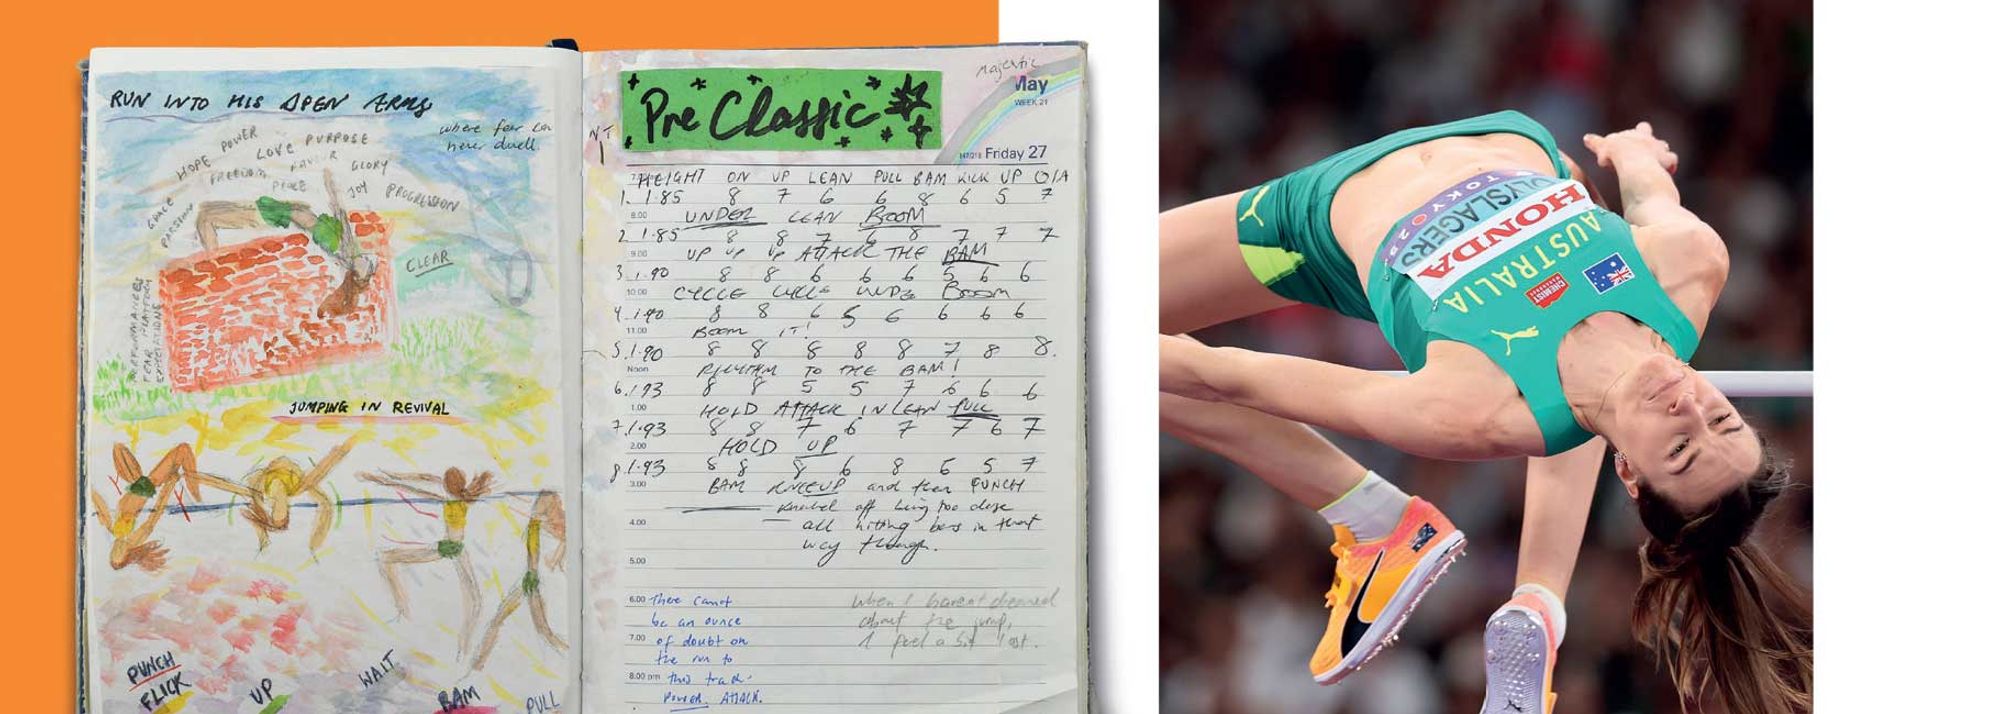 RUN INTO HIS OPEN ARMS
where fear can
never dwell.
HOPE POWER
LOVE PURPOSE
FREEDOM FAVOUR GLORY
GRACE PEACE JOY PROGRESSION
PASSION
CLEAR
PERFORMANCES
FEAR FLATTERY
EXPECTATIONS
JUMPING IN REVIVAL
PUNCH
FLICK
UP
WAIT
BAM
PULL
Pre Classic
majestic
May
WEEK 21
Friday 27
HEIGHT ON UP LEAN PULL BAM KICK UP O/A
1. 1.85 8 7 6 6 8 6 5 7
8.00 UNDER LEAN BOOM
2 1.85 8 8 7 6 8 7 7 7
9.00 UP UP UP ATTACK THE BAM
3. 1.90 8 8 6 6 6 5 6 6
10.00 CYCLE CYCLE BOOM
4. 1.90 8 8 6 5 6 6 6 6
11.00 BOOM IT!
5. 1.90 8 8 8 8 8 7 8 8.
Noon RHYTHM TO THE BAM!
6. 1.93 8 8 5 5 7 6 6 6
1.00 HOLD ATTACK IN LEAN PULL
7. 1.93 8 8 7 6 7 7 6 7
2.00 HOLD UP
8 1.93 8 8 8 6 8 6 5 7
3.00 BAM KNEEUP and then PUNCH
off being too close
4.00 all hitting bar in that
way though.
5.00
6.00 There cannot
be an ounce
7.00 of doubt on
the run to
8.00 pm this track.
POWER. ATTACK.
When I haven't dreamed
about the jump,
I feel a bit lost.
TOKYO
OLYSLAGERS
HONDA
AUSTRALIA
CHEMIST
WAREHOUSE